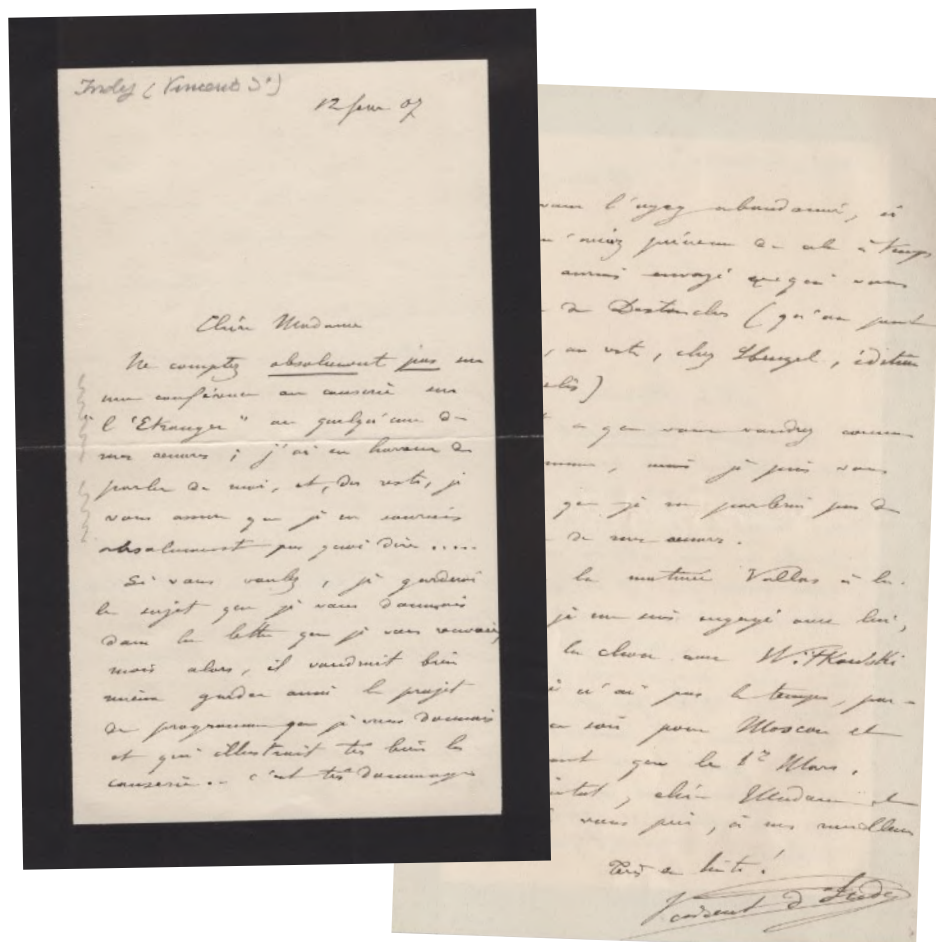 Indy (Vincent d')
12 fevr 07
Chère Madame
Ne comptez absolument pas sur
une conférence ou causerie sur
l'"Etranger" ou quelqu'une de
mes œuvres ; j'ai en horreur de
parler de moi, et, du reste, je
vous assure que je ne saurais
absolument pas quoi dire ....
Si vous voulez, je garderai
le sujet que je vous donnais
dans la lettre que je vous
mais alors, il vaudrait bien
mieux garder aussi le projet
de programme que je vous donnais
et qui illustrait très bien la
causerie .. c'est très dommage
vous l'ayez abandonné, si
m'aviez prévenu de cela à temps
aurais envoyé que vous
de Destouches (qu'on peut
, au reste, chez , éditeur
)
que vous voudrez comme
, mais je puis vous
que je ne parlerai pas de
de mes œuvres.
la matinée Vallas à la
je me suis engagé avec lui,
la chose avec Witkowski
n'ai pas le temps, par-
ce soir pour Moscou et
que le 1er Mars.
, chère Madame et
vous prie, à mes meilleurs
en hâte !
Vincent d'Indy